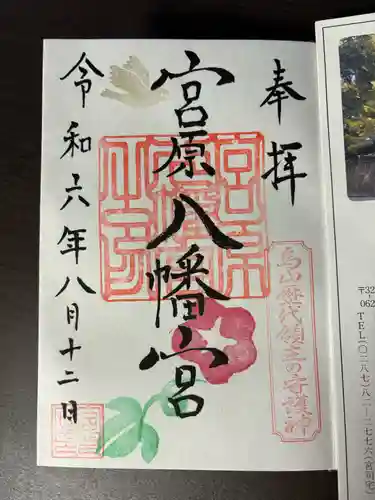 奉拝
宮原八幡宮
令和六年八月十二日
烏山歴代領主の守護神
〒32
062
TEL(〇二八七)八二-二七七六(宮司宅